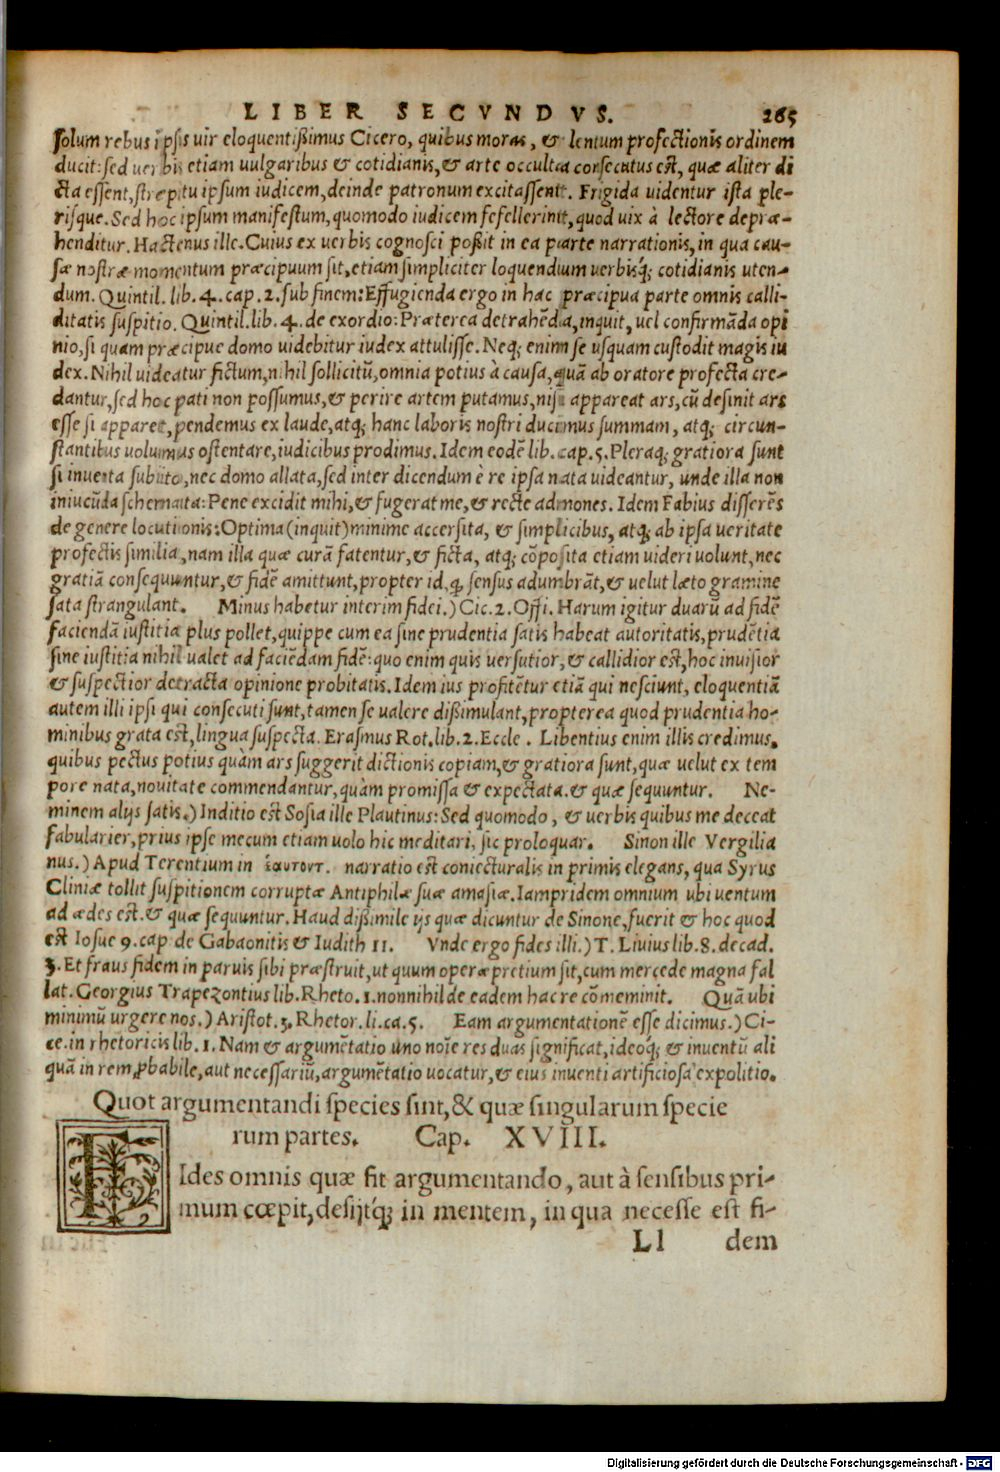 LIBER SECVNDVS. 265
solum rebus ipsis uir eloquentißimus Cicero, quibus moras, & lentum profectionis ordinem
ducit: sed uerbis etiam uulgaribus & cotidianis, & arte occulta consecutus est, quæ aliter di
cta essent, strepitu ipsum iudicem, deinde patronum excitassent. Frigida uidentur ista ple-
risque. Sed hoc ipsum manifestum, quomodo iudicem fefellerint, quod uix à lectore depræ-
henditur. Hactenus ille. Cuius ex uerbis cognosci poßit in ea parte narrationis, in qua cau-
sæ nostræ momentum præcipuum sit, etiam simpliciter loquendium uerbisq́; cotidianis uten-
dum. Quintil. lib. 4. cap. 2. sub finem: Effugienda ergo in hac præcipua parte omnis calli-
ditatis suspitio. Quintil. lib. 4. de exordio: Præterea detrahẽda, inquit, uel confirmãda opi
nio, si quam præcipue domo uidebitur iudex attulisse. Neq; enim se usquam custodit magis iu
dex. Nihil uideatur fictum, nihil sollicitũ, omnia potius à causa, quã ab oratore profecta cre-
dantur, sed hoc pati non possumus, & perire artem putamus, nisi appareat ars, cũ desinit ars
esse si apparet, pendemus ex laude, atq; hanc laboris nostri ducimus summam, atq; circun-
stantibus uolumus ostentare, iudicibus prodimus. Idem eodẽ lib. cap. 5. Pleraq; gratiora sunt
si inuenta subito, nec domo allata, sed inter dicendum è re ipsa nata uideantur, unde illa non
iniucũda schemata: Pene excidit mihi, & fugerat me, & recte admones. Idem Fabius disserẽs
de genere locutionis: Optima (inquit) minime accersita, & simplicibus, atq; ab ipsa ueritate
profectis similia, nam illa quæ curã fatentur, & ficta, atq; cõposita etiam uideri uolunt, nec
gratiã consequuntur, & fidẽ amittunt, propter id, ꝙ sensus adumbrãt, & uelut læto gramine
sata strangulant. Minus habetur interim fidei.) Cic. 2. Offi. Harum igitur duarũ ad fidẽ
faciendã iustitia plus pollet, quippe cum ea sine prudentia satis habeat autoritatis, prudẽtia
sine iustitia nihil ualet ad faciẽdam fidẽ: quo enim quis uersutior, & callidior est, hoc inuisior
& suspectior detracta opinione probitatis. Idem ius profitẽtur etiã qui nesciunt, eloquentiã
autem illi ipsi qui consecuti sunt, tamen se ualere dißimulant, propterea quod prudentia ho-
minibus grata est, lingua suspecta. Erasmus Rot. lib. 2. Eccle. Libentius enim illis credimus,
quibus pectus potius quàm ars suggerit dictionis copiam, & gratiora sunt, quæ uelut ex tem
pore nata, nouitate commendantur, quàm promissa & expectata. & quæ sequuntur. Ne-
minem alijs satis.) Inditio est Sosia ille Plautinus: Sed quomodo, & uerbis quibus me deceat
fabularier, prius ipse mecum etiam uolo hic meditari, sic proloquar. Sinon ille Vergilia
nus.) Apud Terentium in ἑαυτοντ. narratio est coniecturalis in primis elegans, qua Syrus
Cliniæ tollit suspitionem corruptæ Antiphilæ suæ amasiæ. Iampridem omnium ubi uentum
ad ædes est. & quæ sequuntur. Haud dißimile ijs quæ dicuntur de Sinone, fuerit & hoc quod
est Iosue 9. cap de Gabaonitis & Iudith 11. Vnde ergo fides illi.) T. Liuius lib. 8. decad.
3. Et fraus fidem in paruis sibi præstruit, ut quum operæ pretium sit, cum mercede magna fal
lat. Georgius Trapezontius lib. Rheto. 1. nonnihil de eadem hac re cõmeminit. Quã ubi
minimũ urgere nos.) Aristot. 3. Rhetor. li. ca. 5. Eam argumentationẽ esse dicimus.) Ci-
ce. in rhetoricis lib. 1. Nam & argumẽtatio uno noĩe res duas significat, ideoq́; & inuentũ ali
quã in rem ꝓbabile, aut necessariũ, argumẽtatio uocatur, & eius inuenti artificiosa expolitio.
Quot argumentandi species sint, & quæ singularum specie
rum partes. Cap. XVIII.
FIdes omnis quæ fit argumentando, aut à sensibus pri-
mum cœpit, desijtq́; in mentem, in qua necesse est fi-
Ll dem
Digitalisierung gefördert durch die Deutsche Forschungsgemeinschaft - DFG